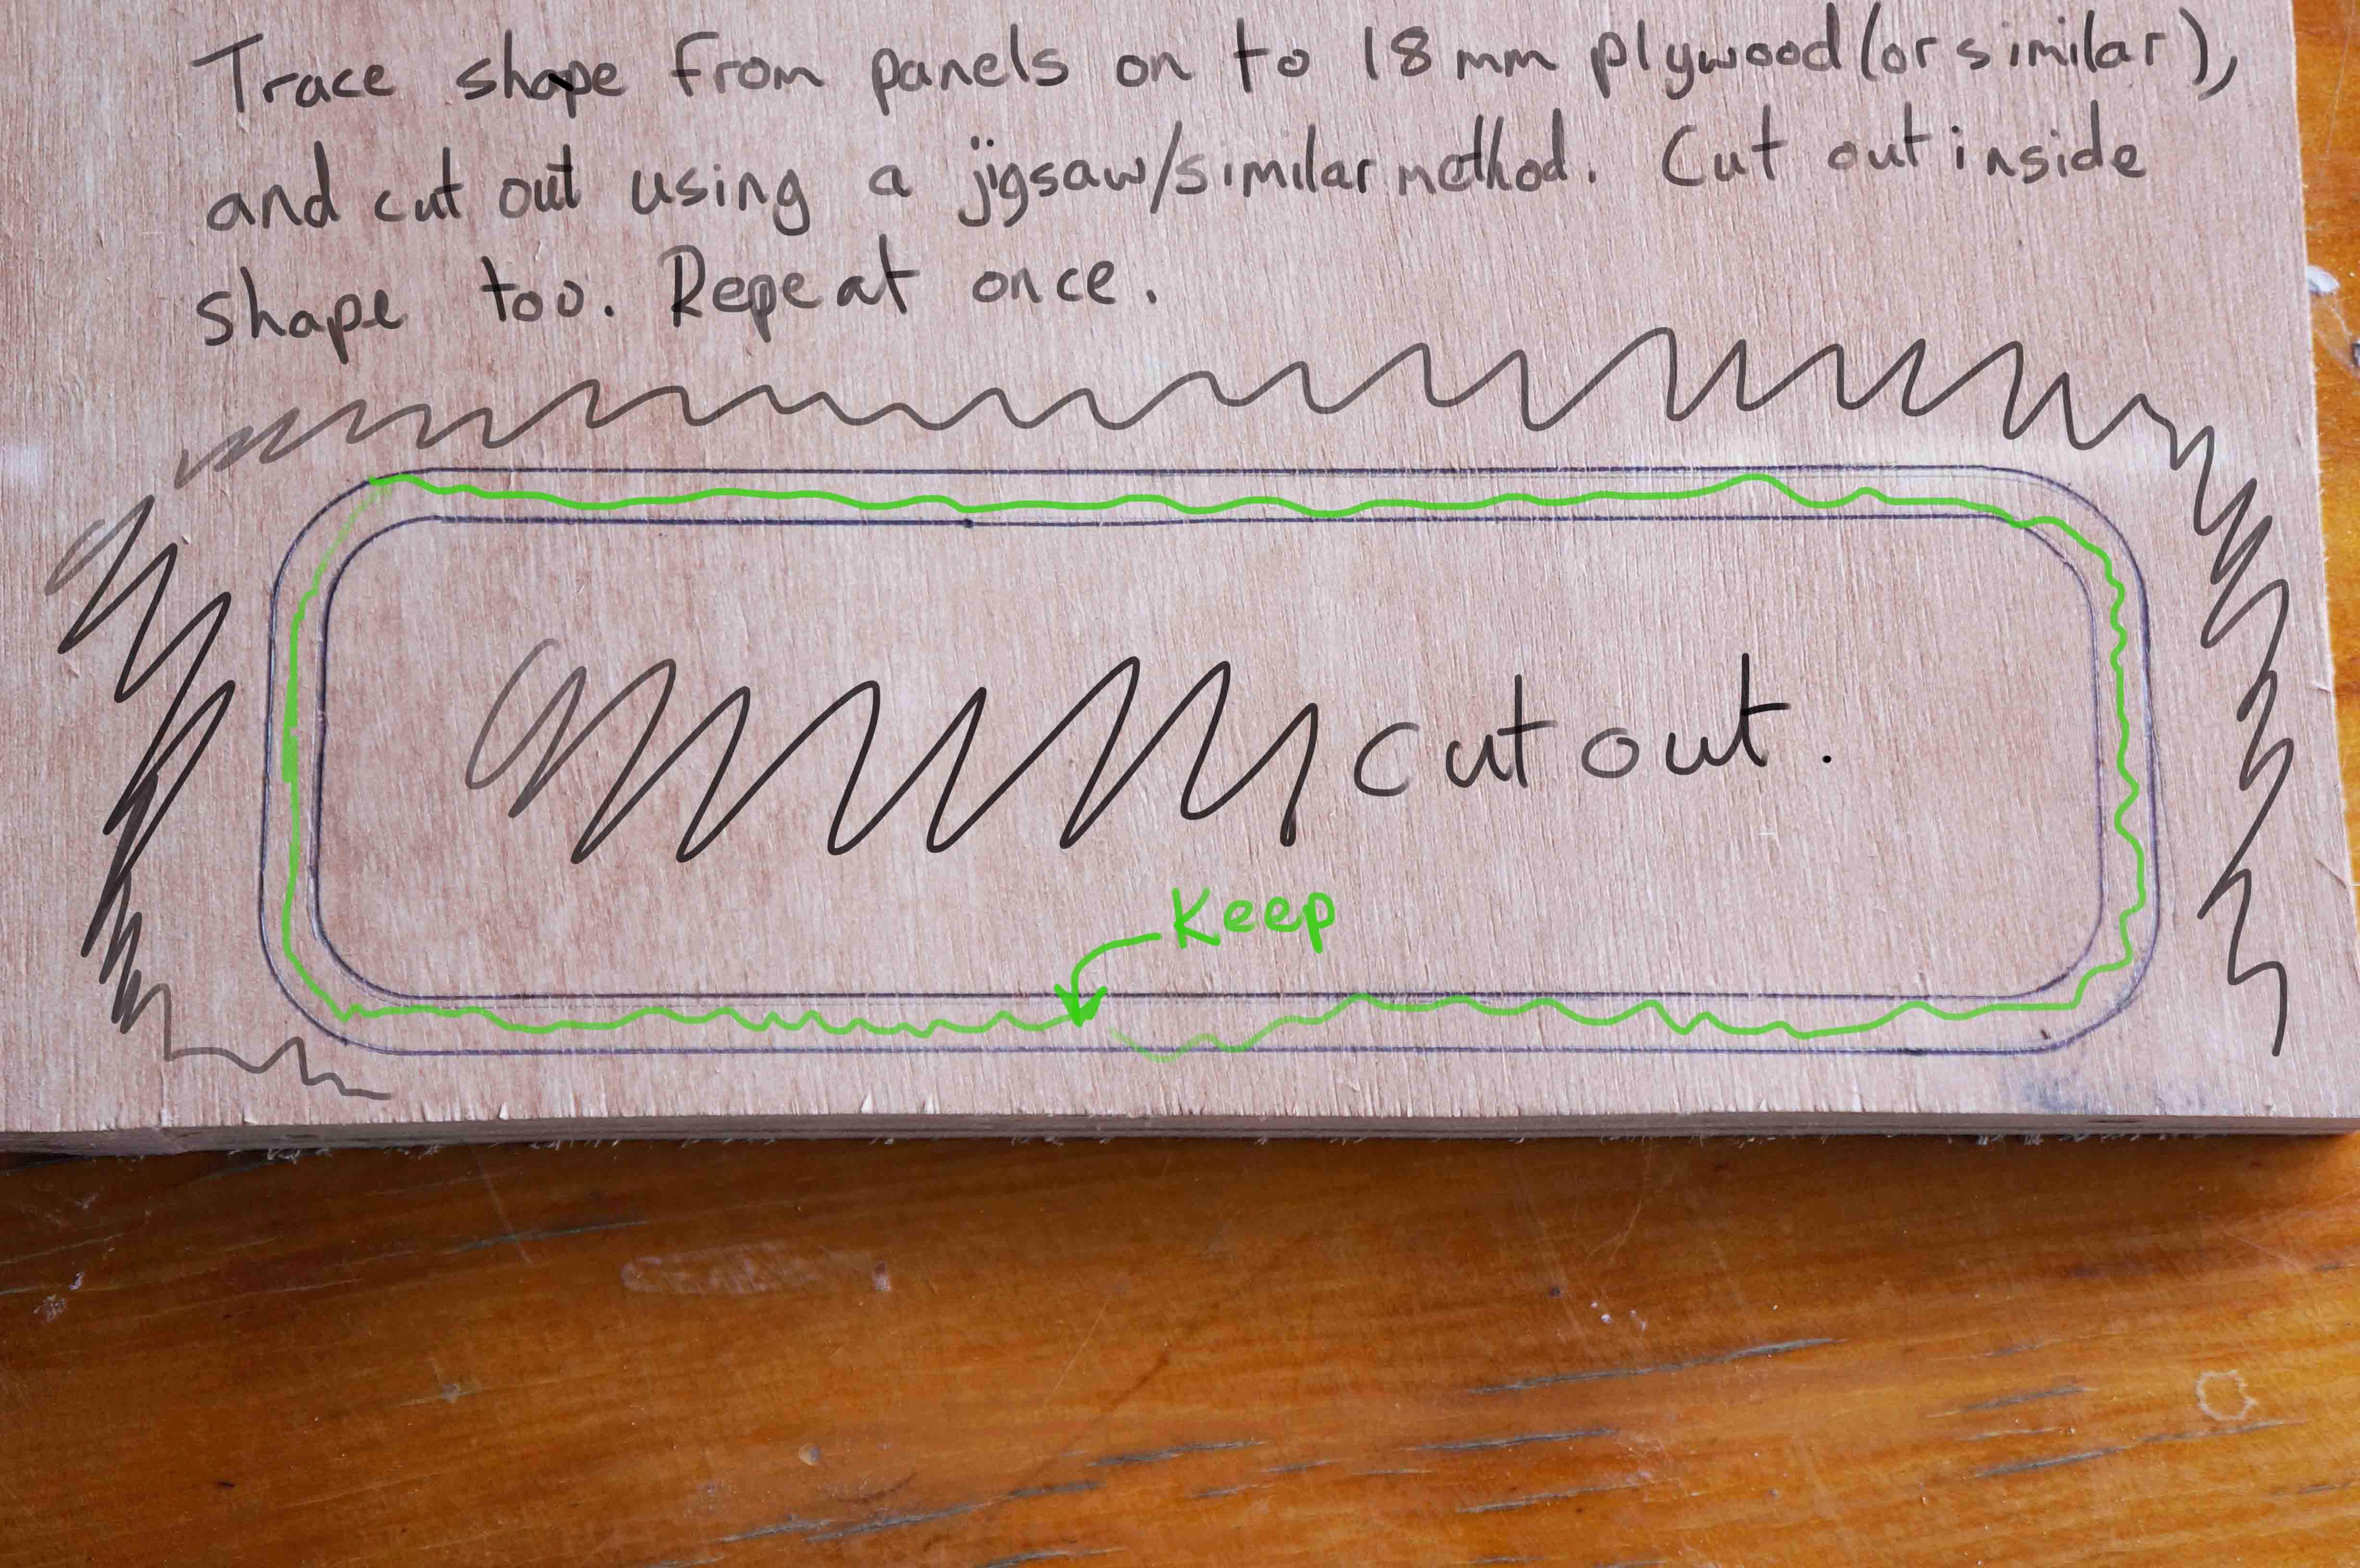 Trace shape from panels on to 18mm plywood (or similar),
and cut out using a jigsaw/similar method. Cut out inside
shape too. Repeat once.
cut out.
Keep